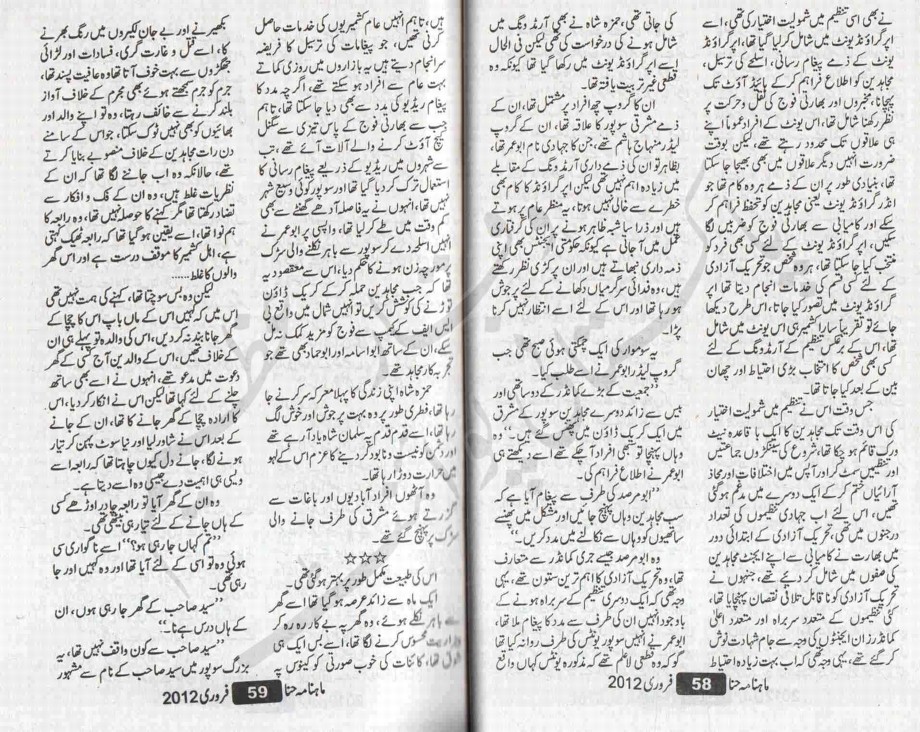 نے بھی اسی تنظیم میں شمولیت اختیار کی تھی، اسے
اپر گراؤنڈ یونٹ میں شامل کر لیا گیا تھا، اپر گراؤنڈ
یونٹ کے ذمے پیغام رسانی، اسلحے کی ترسیل،
مجاہدین کو اطلاع فراہم کر کے ہائیڈ آؤٹ تک
پہچانا، مخبروں اور بھارتی فوج کی نقل و حرکت پر
نظر رکھنا شامل تھا، اس یونٹ کے افراد عموماً اپنے
ہی علاقوں تک محدود رہتے تھے، لیکن بوقت
ضرورت انہیں دیگر علاقوں میں بھی بھیجا جا سکتا
تھا، بنیادی طور پر ان کے ذمے ہر وہ کام تھا جو
انڈر گراؤنڈ یونٹ یعنی مجاہدین کو تحفظ فراہم کر
سکے اور کامیابی سے بھارتی فوج کو ضربیں لگا
سکیں، اپر گراؤنڈ یونٹ کے لئے کسی بھی فرد کو
منتخب کیا جا سکتا تھا، ہر وہ شخص جو تحریک آزادی
کے لئے کسی قسم کی خدمات انجام دیتا تھا اپر
گراؤنڈ یونٹ میں تصور کیا جاتا، اس طرح دیکھا
جائے تو تقریباً سارا کشمیر ہی اس یونٹ میں شامل
تھا، اس کے برعکس تنظیم کے آرمڈ ونگ کے لئے
کسی بھی شخص کا انتخاب بڑی احتیاط اور چھان
بین کے بعد کیا جاتا تھا۔
جس وقت اس نے تنظیم میں شمولیت اختیار
کی اس وقت تک مجاہدین کا ایک باقاعدہ نیٹ
ورک قائم ہو چکا تھا، شروع کی سینکڑوں جماعتیں
اور تنظیمیں سمٹ کر اور آپس میں اختلافات اور محاذ
آرائیاں ختم کر کے ایک دوسرے میں مدغم ہو گئی
تھیں، اس لئے اب جہادی تنظیموں کی تعداد
درجنوں میں تھی، تحریک آزادی کے ابتدائی دور
میں بھارت نے کامیابی سے اپنے ایجنٹ مجاہدین
کی صفوں میں شامل کر دیے تھے، جنہوں نے
تحریک آزادی کو نا قابل تلافی نقصان پہنچایا تھا،
کئی تنظیموں کے متعدد سربراہ اور متعدد اعلیٰ
کمانڈرز ان ایجنٹوں کی وجہ سے جام شہادت نوش
کر گئے تھے، یہی وجہ تھی کہ اب بہت زیادہ احتیاط
کی جاتی تھی، حمزہ شاہ نے بھی آرمڈ ونگ میں
شامل ہونے کی درخواست کی تھی لیکن فی الحال
اسے اپر گراؤنڈ یونٹ میں رکھا گیا تھا کیونکہ وہ
قطعی غیر تربیت یافتہ تھا۔
ان کا گروپ چھ افراد پر مشتمل تھا، ان کے
ذمے مشرقی سوپور کا علاقہ تھا، ان کے گروپ
لیڈر منہاج ہاشم تھے، جن کا جہادی نام ابو عمر تھا،
بظاہر تو ان کی ذمے داری آرمڈ ونگ کے مقابلے
میں زیادہ اہم نہیں تھی لیکن اپر گراؤنڈ کا کام بھی
خطرے سے خالی نہیں ہوتا، یہ منظر عام پر ہوتے
ہیں اور ذرا سا شبہ ظاہر ہونے پر ان کی گرفتاری
عمل میں آ جاتی ہے کیونکہ حکومتی ایجنٹس بھی اپنی
ذمہ داری نبھاتے ہیں اور ان پر کڑی نظر رکھتے
ہیں، وہ فدائی سرگرمیاں دکھانے کے لئے پر جوش
ہو رہا تھا اور اس کے لئے اسے انتظار نہیں کرنا
پڑا۔
یہ سوموار کی ایک چمکتی ہوئی صبح تھی جب
گروپ لیڈر ابو عمر نے اسے طلب کیا۔
”جمعیت کے بڑے کمانڈر کے دو ساتھی اور
بیس سے زائد دوسرے مجاہدین سوپور کے مشرق
میں ایک کریک ڈاؤن میں پھنس گئے ہیں۔“ وہ
وہاں پہنچا تو سبھی افراد آ چکے تھے اسے دیکھتے ہی
ابو عمر نے اطلاع فراہم کی۔
”ابو مرصد کی طرف سے پیغام آیا ہے کہ
سب مجاہدین وہاں پہنچ جائیں اور مشکل میں پھنسے
ساتھیوں کو وہاں سے نکالنے میں مدد کریں۔“
وہ ابو مرصد جیسے جری کمانڈر سے متعارف
تھا، وہ تحریک آزادی کا اہم ترین ستون تھے، یہی
وجہ تھی کہ ایک دوسری تنظیم کے سربراہ ہونے کے
باوجود انہیں ان کی طرف سے مدد کا پیغام ملا تھا،
ابو عمر نے انہیں سوپور یونٹس کی طرف روانہ کیا تھا
گو کہ وہ قطعی لاعلم تھے کہ مذکورہ یونٹس کہاں واقع
ماہنامہ حنا 58 فروری 2012
ہیں، تاہم انہیں عام کشمیریوں کی خدمات حاصل
کرنی تھیں، جو پیغامات کی ترسیل کا فریضہ
سرانجام دیتے ہیں یہ بازاروں میں روزی کماتے
بہت عام سے افراد ہو سکتے تھے، اگرچہ مدد کا
پیغام ریڈیو کی مدد سے بھی دیا جا سکتا تھا، تاہم
جب سے بھارتی فوج کے پاس تیزی سے سگنل
کیچ آؤٹ کرنے والے آلات آئے تھے، تب
سے شہروں میں ریڈیو کے ذریعے پیغام رسانی کا
استعمال ترک کر دیا گیا تھا اور سوپور کوئی وسیع شہر
نہیں تھا، انہوں نے یہ فاصلہ آدھے گھنٹے سے بھی
کم وقت میں طے کر لیا تھا، واپسی پر ابو عمر نے
انہیں اسلحہ دے کر سوپور سے باہر نکلنے والی سڑک
پر مورچہ زن ہونے کا حکم دیا، اس سے مقصود یہ
تھا کہ جب مجاہدین حملہ کر کے کریک ڈاؤن
توڑنے کی کوشش کریں تو انہیں شمال میں واقع بی
ایس ایف کے کیمپ سے فوج کو مزید کمک نہ مل
سکے، ان کے ساتھ ابو اسامہ اور ابو حماد بھی تھے جو
تجربہ کار مجاہد تھے۔
حمزہ شاہ اپنی زندگی کا پہلا معرکہ سر کرنے جا
رہا تھا، فطری طور پر وہ بہت پر جوش اور خوش لگ
رہا تھا، اسے قدم قدم پہ سلمان شاہ یاد آ رہے تھے
اور دشمن کو نیست و نابود کر دینے کا عزم اس کے لہو
میں حرارت دوڑا رہا تھا۔
وہ آٹھوں افراد آبادیوں اور باغات سے
گزرتے ہوئے مشرق کی طرف جانے والی
سڑک پر پہنچ گئے تھے۔
☆☆☆
اس کی طبیعت مکمل طور پر بہتر ہو گئی تھی۔
ایک ماہ سے زائد عرصہ ہو گیا تھا اسے گھر
سے باہر نکلے ہوئے، وہ گھر پہ بے کار رہ رہ کر
بیزاریت محسوس کرنے لگا تھا، اسے بس ایک ہی
شوق تھا، کائنات کی خوب صورتی کو کینوس پہ
بکھیرنے اور بے جان لکیروں میں رنگ بھرنے
کا، اسے قتل و غارت گری، فسادات اور لڑائی
جھگڑوں سے بہت خوف آتا تھا وہ عافیت پسند تھا،
جرم کو جرم سمجھتے ہوئے بھی مجرم کے خلاف آواز
بلند کرنے سے خائف رہتا، وہ تو اپنے والد اور
بھائیوں کو بھی نہیں ٹوک سکتا، جو اس کے سامنے
دن رات مجاہدین کے خلاف منصوبے بنایا کرتے
تھے، حالانکہ وہ اب جاننے لگا تھا کہ ان کے
نظریات غلط ہیں، وہ ان کے فک و افکار سے
تضاد رکھتا تھا مگر کہنے کا حوصلہ نہیں تھا، وہ رابعہ کا
ہم نوا تھا، اسے یقین ہو گیا تھا کہ رابعہ ٹھیک کہتی
ہے، اہل کشمیر کا موقف درست ہے اور اس گھر
والوں کا غلط……
لیکن وہ بس سوچتا تھا، کہنے کی ہمت نہیں تھی
اس میں کہ کہیں اس کے ماں باپ اس کا چچا کے
گھر جانا بند نہ کر دیں، اس کی والدہ تو پہلے ہی ان
کے خلاف تھیں، اس کے والدین آج کسی کے گھر
دعوت میں مدعو تھے، انہوں نے اسے بھی ساتھ
چلنے کے لئے کہا تھا لیکن اس نے انکار کر دیا، اس
کا ارادہ چچا کے گھر جانے کا تھا، ان کے جانے
کے بعد اس نے شاور لیا اور نیا سوٹ پہن کر تیار
ہونے لگا، جانے دل کیوں چاہتا تھا کہ رابعہ اسے
ویسی ہی اہمیت دے جیسی وہ اسے دیتا ہے۔
وہ ان کے گھر آیا تو رابعہ چادر اوڑھے کسی
کے ہاں جانے کے لئے تیار ہی بیٹھی تھی۔
”تم کہاں جا رہی ہو؟“ اسے ناگواری سی
ہوئی وہ تو اسی کے لئے آیا تھا اور وہ کہیں اور جا
رہی تھی۔
”سید صاحب کے گھر جا رہی ہوں، ان
کے ہاں درس ہے نا۔“
”سید صاحب سے کون واقف نہیں تھا، یہ
بزرگ سوپور میں سید صاحب کے نام سے مشہور
ماہنامہ حنا 59 فروری 2012